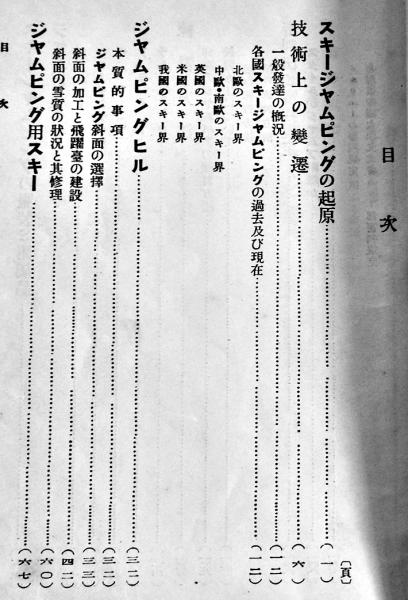 目次
〔頁〕
スキージャムピングの起原……(一)
技術上の變遷……(六)
一般發達の槪況……(一二)
各國スキージャムピングの過去及び現在……(一二)
北歐のスキー界
中歐・南歐のスキー界
英國のスキー界
米國のスキー界
我國のスキー界
ジャムピングヒル……(三二)
本質的事項……(三二)
ジャムピング斜面の選擇……(三三)
斜面の加工と飛躍臺の建設……(四二)
斜面の雪質の狀況と其修理……(六〇)
ジャムピング用スキー……(六七)
目次